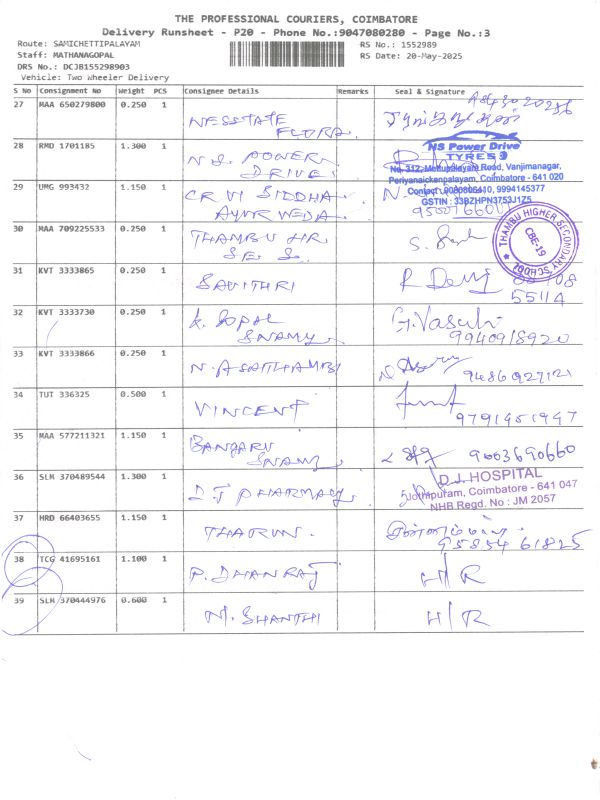 THE PROFESSIONAL COURIERS, COIMBATORE
Delivery Runsheet - P20 - Phone No.:9047080280 - Page No.:3
Route: SAMICHETTIPALAYAM RS No.: 1552989
Staff: MATHANAGOPAL RS Date: 20-May-2025
DRS No.: DCJB155298903
Vehicle: Two Wheeler Delivery
S No Consignment No Weight PCS Consignee Details Remarks Seal & Signature
27 MAA 650279800 0.250 1
NESSTATE
FLORA.
28 RMD 1701185 1.300 1 NS Power Drive
N S. POWER TYRES
DRIVE. No. 312, Mettupalayam Road, Vanjimanagar,
Periyanaickenpalayam, Coimbatore - 641 020
29 UMG 993432 1.150 1 Contact : 9080806410, 9994145377
CR VI SIDDHA GSTIN : 33BZHPN3753J1Z5
AYUR VEDA.
30 MAA 709225533 0.250 1 THAMBU HIGHER SECONDARY SCHOOL
THAMBU HR. CBE-19
SE S.
31 KVT 3333865 0.250 1
SAVITHRI R Devi
55114
32 KVT 3333730 0.250 1 G. Vasuki
K. GOPAL
SWAMY. 9940918920
33 KVT 3333866 0.250 1
N. ASAITHAMBI 9486927121
34 TUT 336325 0.500 1
VINCENT 9791451947
35 MAA 577211321 1.150 1
BANGARU 9003690660
SWAMY
36 SLM 370489544 1.300 1 D.J. HOSPITAL
D J PHARMACY. Jothipuram, Coimbatore - 641 047
NHB Regd. No : JM 2057
37 HRD 66403655 1.150 1
THARUN. 95854 61825
38 TCG 41695161 1.100 1
P. DHANRAJ H/R
39 SLM 370444976 0.600 1
M. SHANTHI H/R